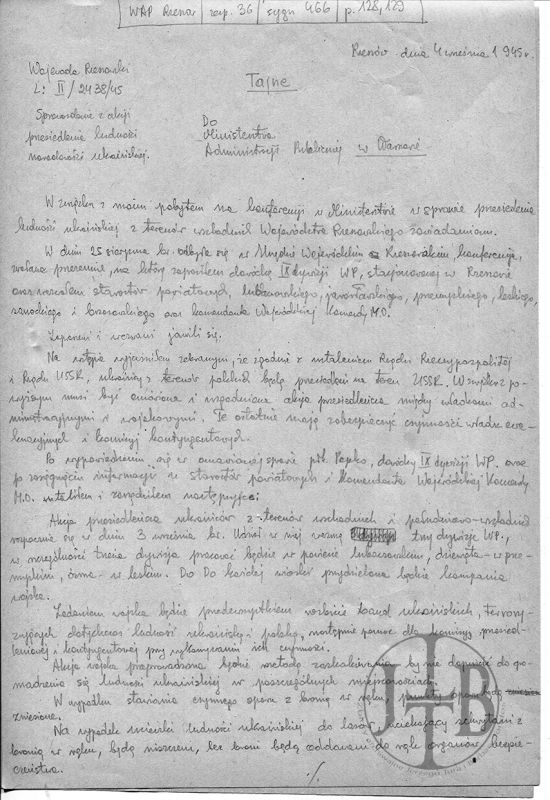 WAP Rzeszów / zesp. 36 / sygn 466 / p. 128, 129
Rzeszów dnia 4 września 1945 r.
Wojewoda Rzeszowski
L: II/2438/45
Tajne
Sprawozdanie z akcji
przesiedlenia ludności
narodowości ukraińskiej.
Do
Ministerstwa
Administracji Publicznej w Warszawie
W związku z moim pobytem na konferencji w Ministerstwie w sprawie przesiedlenia
ludności ukraińskiej z terenów wschodnich Województwa Rzeszowskiego zawiadamiam:
W dniu 25 sierpnia br. odbyła się w Urzędzie Wojewódzkim Rzeszowskim konferencja,
zwołana przeze mnie, na którą zaprosiłem dowódcę IX dywizji WP, stacjonowanej w Rzeszowie
oraz wezwałem starostów powiatowych, lubaczowskiego, jarosławskiego, przemyskiego, leskiego,
sanockiego i brzozowskiego oraz komendanta Wojewódzkiej Komendy M.O.
Zaproszeni i wezwani jawili się.
Na wstępie wyjaśniłem zebranym, że zgodnie z ustaleniem Rządu Rzeczypospolitej
i Rządu USSR, ukraińcy z terenów polskich będą przesiedleni na teren USSR. W związku z po-
wyższym musi być omówiona i uzgodniona akcja przesiedleńcza między władzami ad-
ministracyjnymi a wojskowymi. Te ostatnie mają zabezpieczyć czynności władz ewa-
kuacyjnych i komisji kontyngentowych.
Po wypowiedzeniu się w omawianej sprawie płk. Popko, dowódcy IX dywizji WP. oraz
po zasięgnięciu informacji u starostów powiatowych i Komendanta Wojewódzkiej Komendy
M.O. ustaliłem i zarządziłem następujące:
Akcja przesiedleńcza ukraińców z terenów wschodnich i południowo-wschodnich
rozpocznie się w dniu 3 września br. Udział w niej wezmą trzy dywizje WP.,
w szczególności trzecia dywizja pracować będzie w powiecie lubaczowskim, dziewiąta - w prze-
myskim, ósma - w leskim. Do Do każdej wioski przydzielona będzie kompania
wojska.
Zadaniem wojska będzie przedewszystkim rozbicie band ukraińskich, terrory-
zujących dotychczas ludność ukraińską i polską, następnie pomoc dla komisji przesied-
leniowej i kontyngentowej przy wykonywaniu ich czynności.
Akcja wojska przeprowadzona będzie metodą zaskakiwania by nie dopuścić do gro-
madzenia się ludności ukraińskiej w poszczególnych miejscowościach.
W wypadku stawiania czynnego oporu z bronią w ręku, punkty oporu będą
zniesione.
Na wypadek ucieczki ludności ukraińskiej do lasów, uciekający schwytani z
bronią w ręku, będą niszczeni, bez broni będą oddawani do rąk organów bezpie-
czeństwa.
./.
JTB